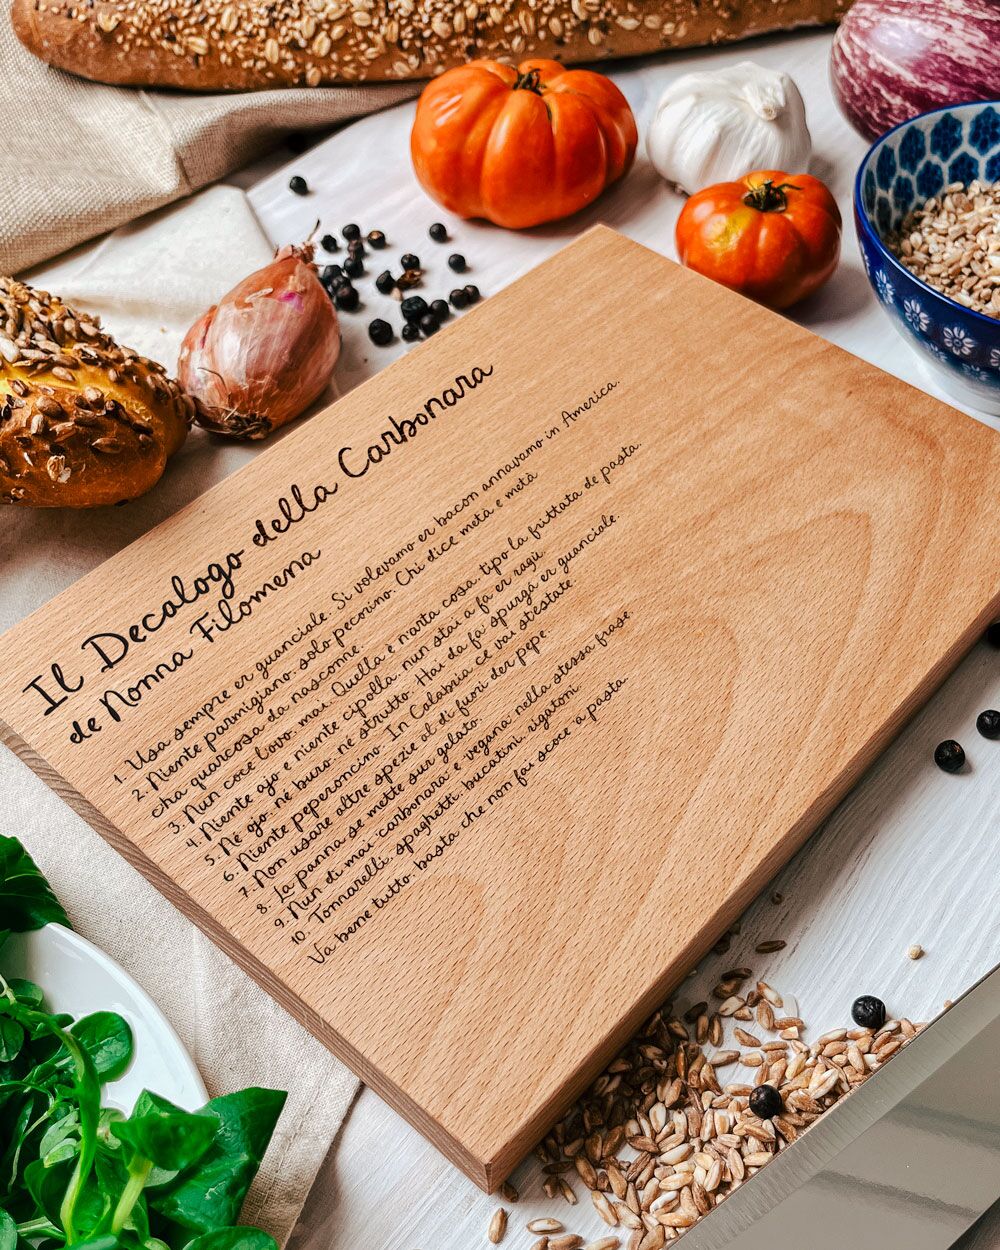 Il Decalogo della Carbonara
de Nonna Filomena
1. Usa sempre er guanciale. Si volevamo er bacon annavamo in America.
2. Niente parmigiano, solo pecorino. Chi dice metà e metà
cha quarcosa da nasconne.
3. Nun coce l'ovo, mai. Quella è n'arta cosa, tipo la frittata de pasta.
4. Niente ajo e niente cipolla, nun stai a fa er ragù.
5. Né ojo, né buro, né strutto. Hai da fà spurgá er guanciale.
6. Niente peperoncino. In Calabria ce vai st'estate.
7. Non usare altre spezie al di fuori der pepe.
8. La panna se mette sur gelato.
9. Nun di mai "carbonara" e "vegana" nella stessa frase.
10. Tonnarelli, spaghetti, bucatini, rigatoni.
Va bene tutto, basta che non fai scoce a pasta.